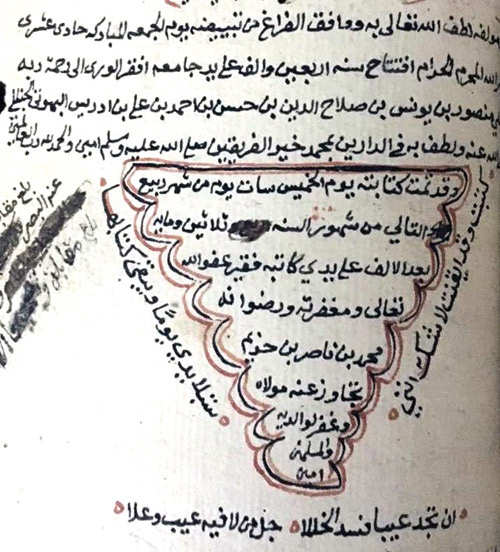 مؤلفه لطف الله تعالى به ووافق الفراغ من تبييضه يوم الجمعه المباركه حادي عشري
الله المحرم الحرام افتتاح سنه اربعين والف على يد جامعه افقر الورى الى رحمة ربه
منصور بن يونس بن صلاح الدين بن حسن بن احمد بن علي بن ادريس البهوتي الحنبلي
عنه ولطف به في الدارين بمحمد خير الفريقين صلى الله عليه وسلم امين والحمد لله رب العالمين
وقد تمت كتابته يوم الخميس سات يوم من شهر ربيع
التالي من شهور السنه وثلاثين ومايه
بعد الالف على يدي كاتبه فقير عفو الله
تعالى ومغفرته ورضوانه
محمد بن ناصر بن حزيم
تجاوز عنه مولاه
وغفر لوالديه
والمسلمين
امين
كتبت وقد ايقنت لا شك انني
ستبلا يدي يوما ويبقى كتابها
بلغ مقابلة
ان تجد عيبا فسد الخللا جل من لا فيه عيب وعلا